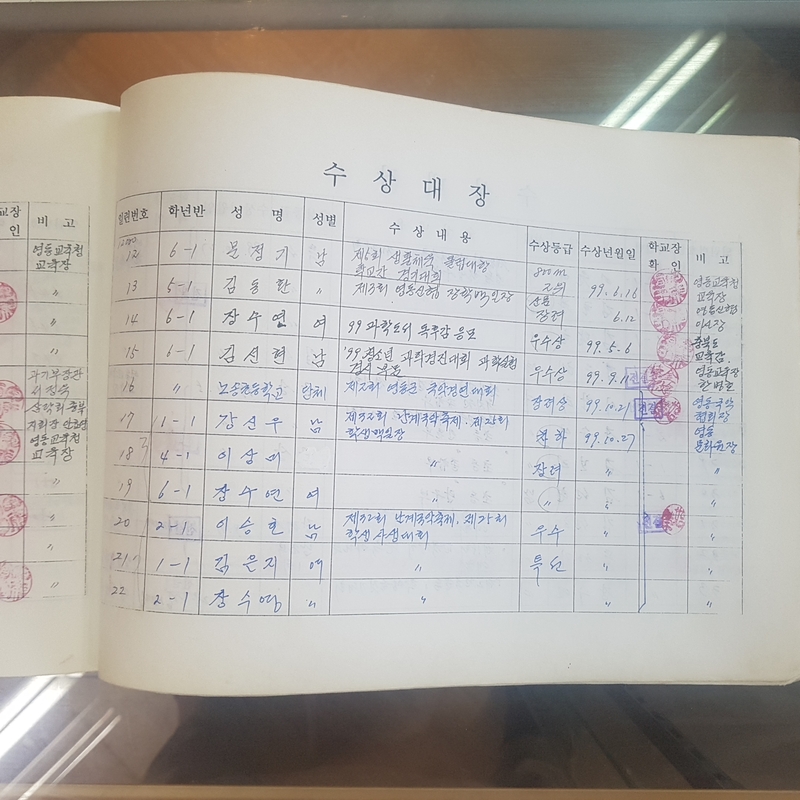 수 상 대 장
교장 인 비 고
영동교육청
교육장
〃
〃
〃
과기부장관
서정욱
영동교육청
교육장
〃
〃
〃
일련번호 학년반 성 명 성별 수 상 내 용 수상등급 수상년월일 학교장 확 인 비 고
12 6-1 문정기 남 제5회 생활체육 클럽대항 800m 영동교육청
학교간 경기대회 교육장
13 5-1 김동환 〃 제3회 영동신협 장학백일장 99.6.16 영동신협
이사장
14 6-1 장수연 여 99 과학도서 독후감 응모 장려 6.12 충북도
교육감
15 6-1 김선현 남 '99 청소년 과학경진대회 과학실험 우수상 99.5.6
16 〃 노송초등학교 단체 제2회 영동군 국악경연대회 우수상 99.9.11 영동교육장
17 1-1 강산우 남 제32회 난계국악축제. 제25회 장려상 99.10.21 영동국악
학생백일장 차하 99.10.27 영동
문화원장
18 4-1 이상미 〃 장려 〃
19 6-1 장수연 여 〃 〃
20 2-1 이승호 남 제32회 난계국악축제. 제25회 우수 〃
학생사생대회
21 1-1 김은지 여 〃 특선 〃 〃
22 2-1 장수영 〃 〃 〃 〃